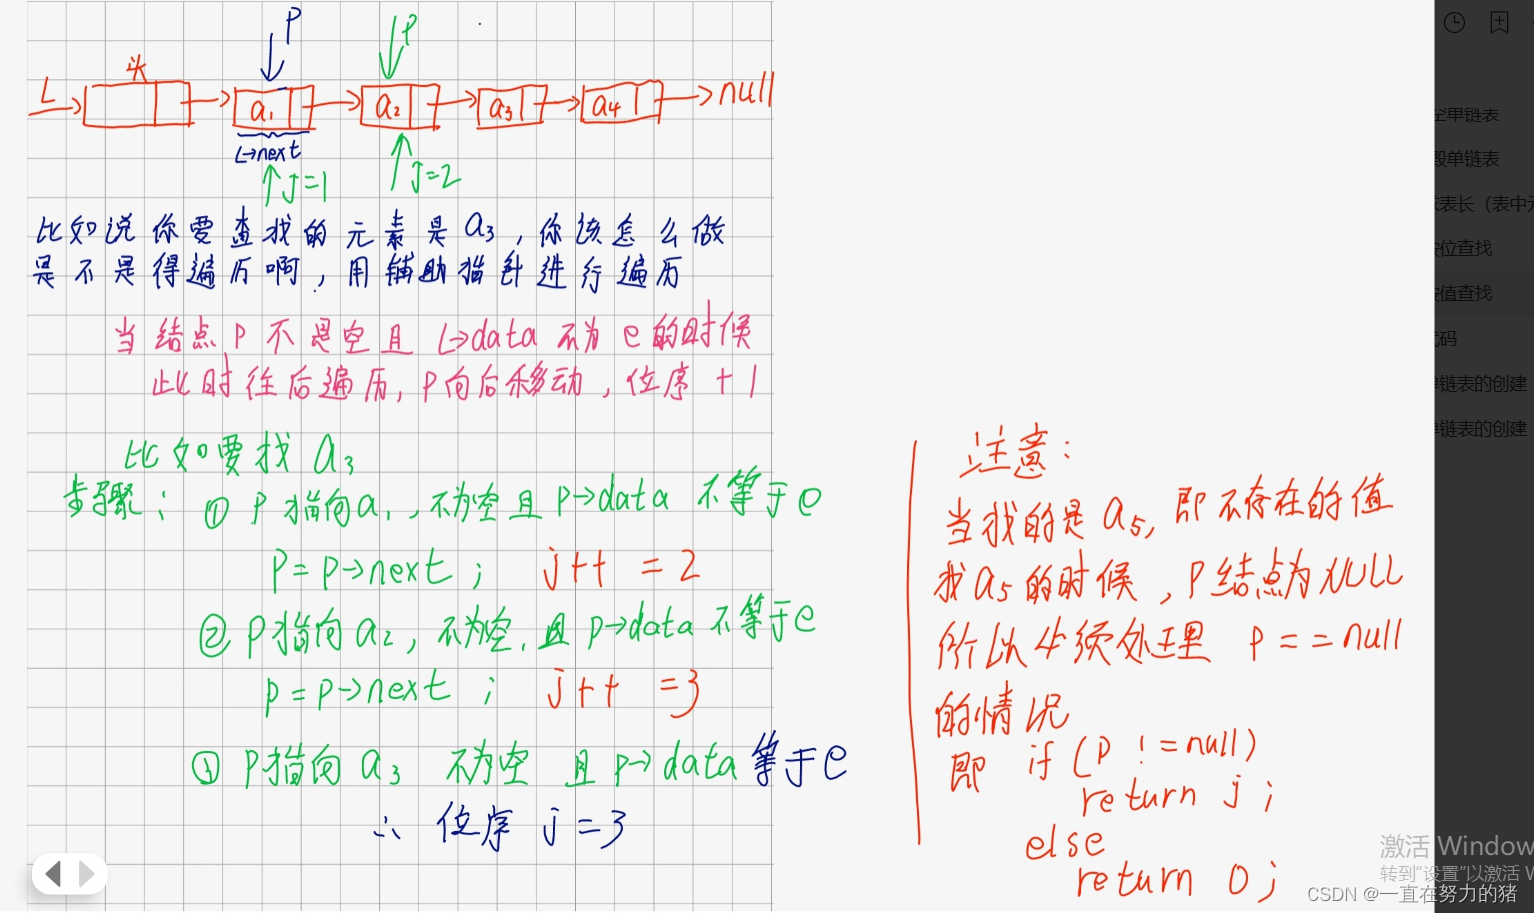 P P
L 头 a₁ a₂ a₃ a₄ null
L→next
J=1 J=2
比如说你要查找的元素是a₃,你该怎么做
是不是得遍历啊,用辅助指针进行遍历
当结点P不是空且L→data不为e的时候
此时往后遍历,P向后移动,位序+1
比如要找a₃
步骤: ① P指向a₁,不为空且P→data不等于e
P=P→next; j++ =2
② P指向a₂,不为空,且P→data不等于e
p=p→next; j++ =3
③ P指向a₃ 不为空 且p→data等于e
∴ 位序 j=3
注意:
当找的是a₅,即不存在的值
找a₅的时候,P结点为NULL
所以必须处理 P==null
的情况
即 if(P !=null)
return j;
else
return 0;
毁单链表
表长(表中元
按位查找
按值查找
代码
单链表的创建
单链表的创建
激活 Window
转到"设置"以激活 W
CSDN @一直在努力的猪